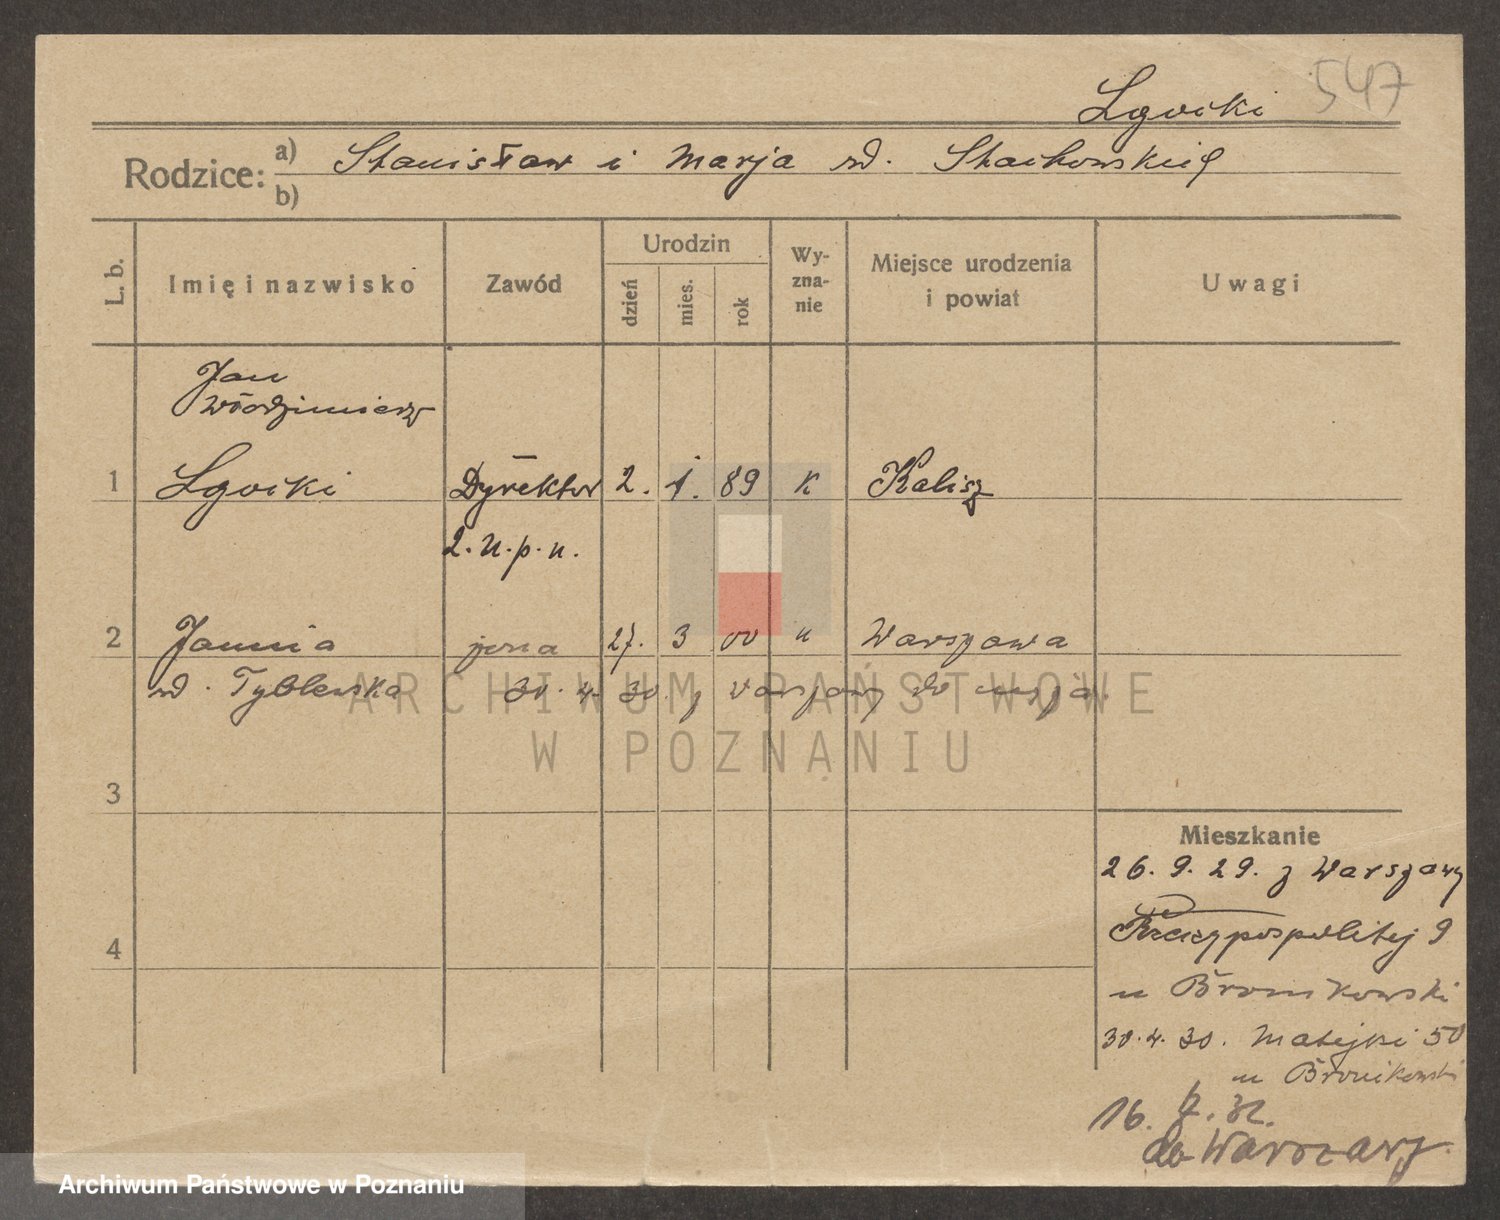 Lgocki 547
Rodzice: a) Stanisław i Marja zd.
b)
L. b.
Imię i nazwisko
Zawód
Urodzin
dzień
mies.
rok
Wy-
zna-
nie
Miejsce urodzenia
i powiat
Uwagi
Jan
Włodzimierz
1 Lgocki Dyrektor 2. 1. 89 K Kalisz
2 Janina żona 27. 3 00 " Warszawa
zd. Tyblewska 30. 4. 30. z Warszawy do męża.
ARCHIWUM PAŃSTWOWE
W POZNANIU
3
4
Mieszkanie
26. 9. 29. z Warszawy
Rzeczypospolitej 9
u Bronikowski
30. 4. 30. Matejki 50
u Bronikowski
16. 32.
do Warszawy.
Archiwum Państwowe w Poznaniu